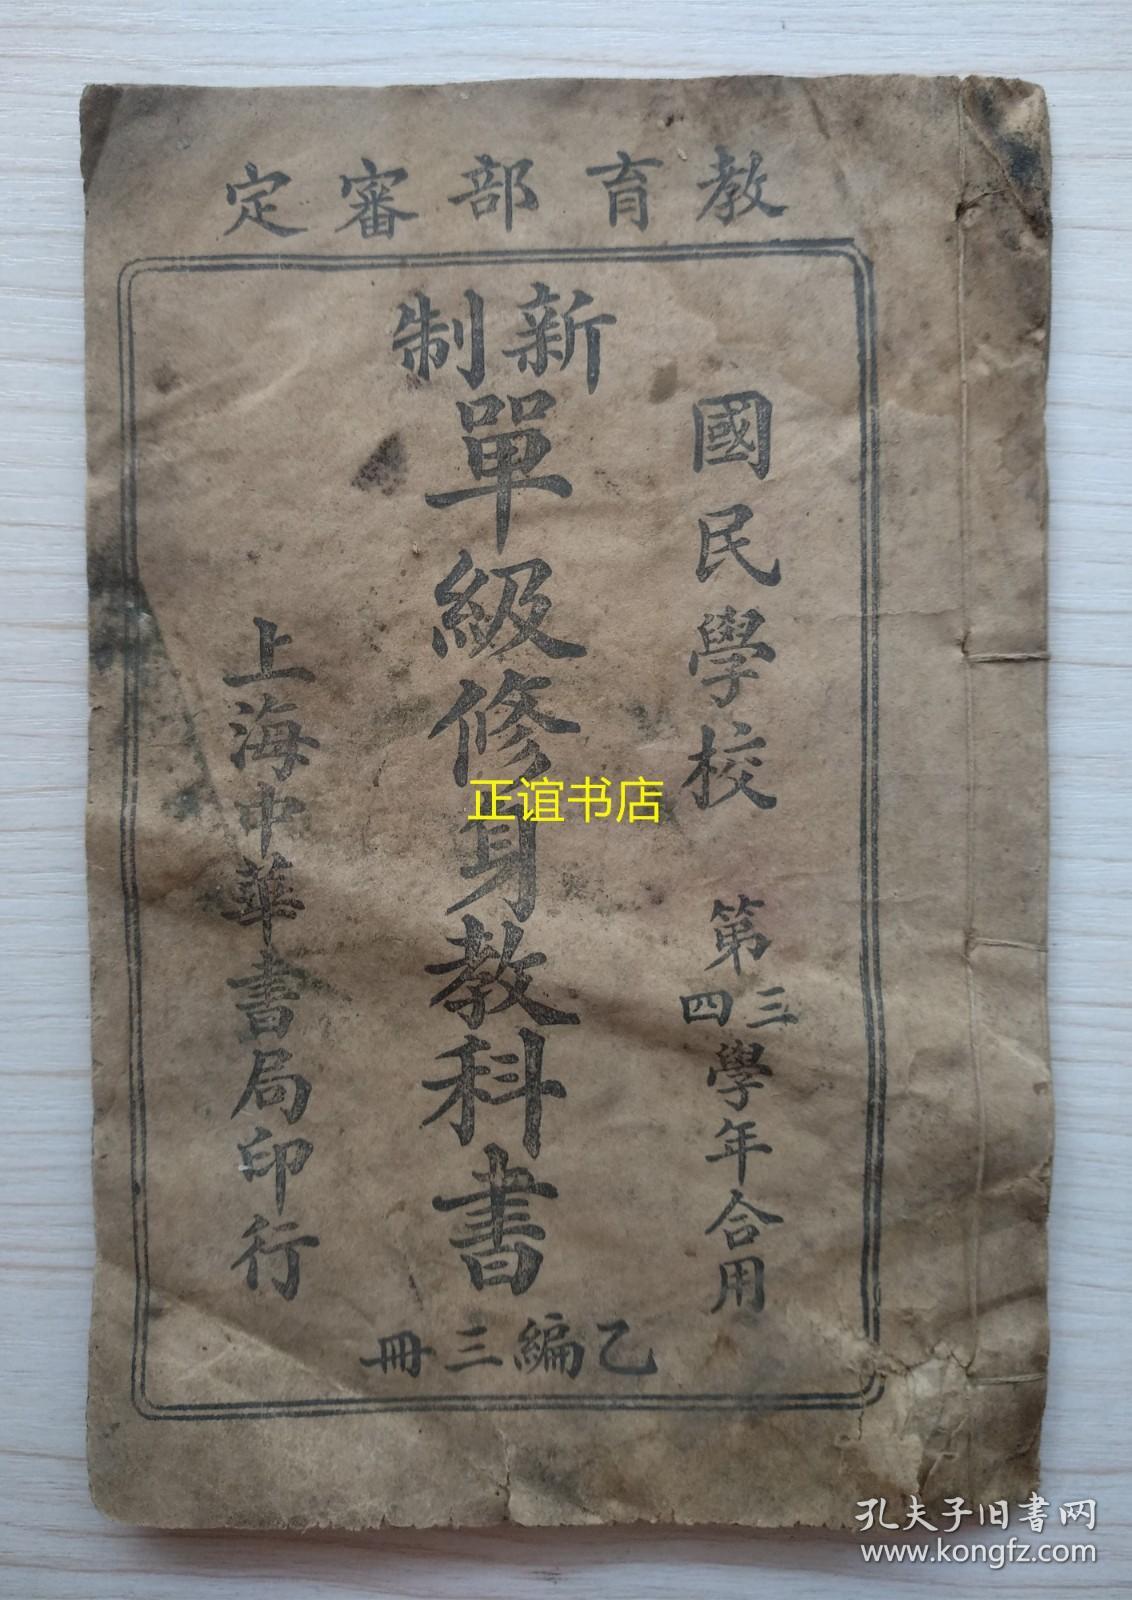 教育部審定
國民學校 第三四學年合用
新制
單級修身教科書
乙編三冊
上海中華書局印行
正谊书店
孔夫子旧书网
www.kongfz.com